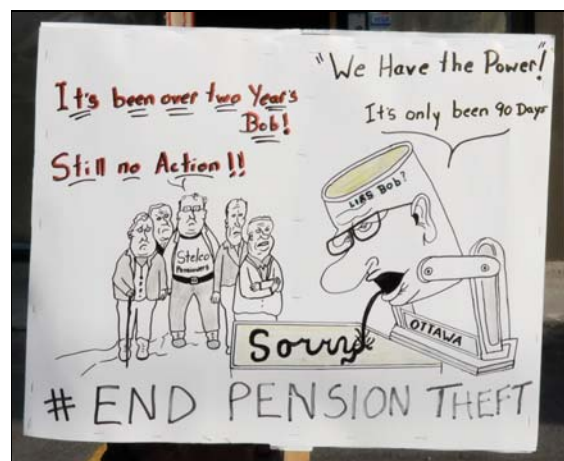 It's been over two Year's
Bob!
Still no Action!!
"We Have the Power!"
It's only been 90 Days
LIES Bob?
Stelco
Pensioners
Sorry
OTTAWA
# END PENSION THEFT